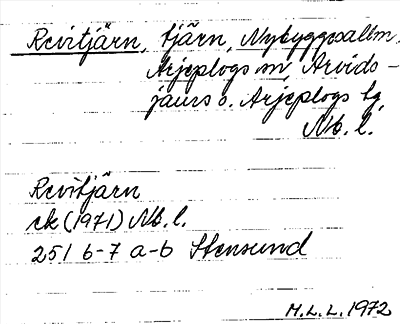 Revitjärn, tjärn, Nybyggesallm.
Arjeplogs sn, Arvids-
jaurs o. Arjeplogs tg,
Nb. l.
Revitjärn
ek (1971) Nb. l.
25 I 6-7 a-b Stensund
M. L. L. 1972